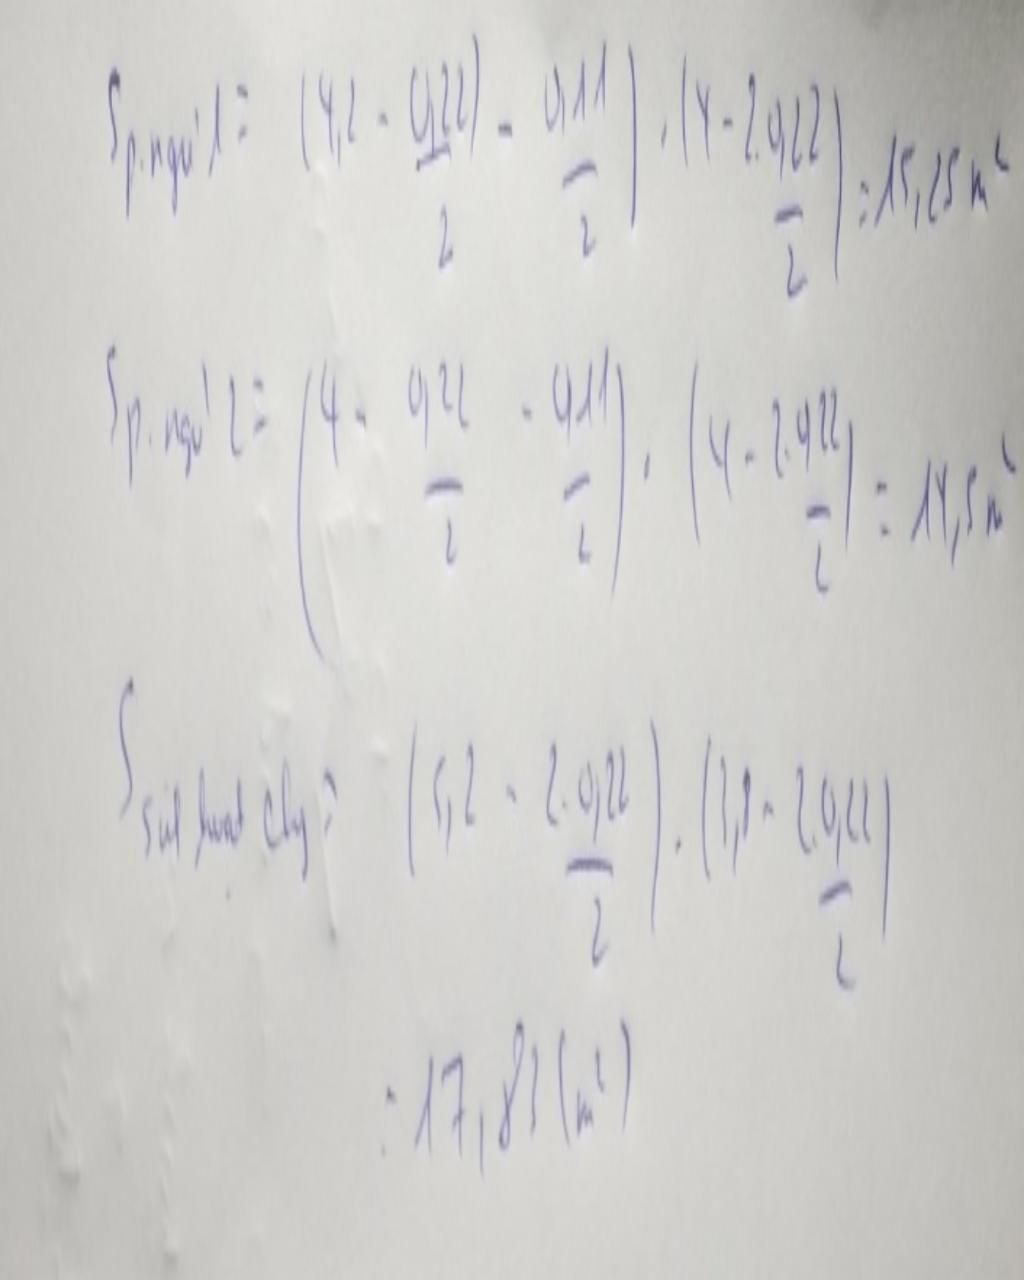 S p.ngủ 1 = (4,2 - 0,22/2 - 0,11/2) . (4 - 2.0,22/2) = 15,25 m²
S p.ngủ 2 = (4 - 0,22/2 - 0,11/2) . (4 - 2.0,22/2) = 14,5 m²
S sinh hoạt = (5,2 - 2.0,22/2) . (3,8 - 2.0,22/2)
= 17,83 (m²)